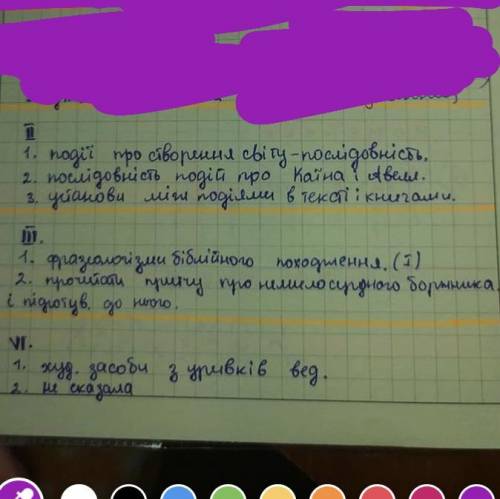 II
1. події про створення світу-послідовність.
2. послідовність подій про Каїна і Авеля.
3. установи між подіями в тексті і книгами.
III.
1. фразіологізми біблійного походження. (I)
2. прочитати притчу про немилосердного боржника.
і підготув. до нього.
VI.
1. худ. засоби з уривків вед.
2. не сказала